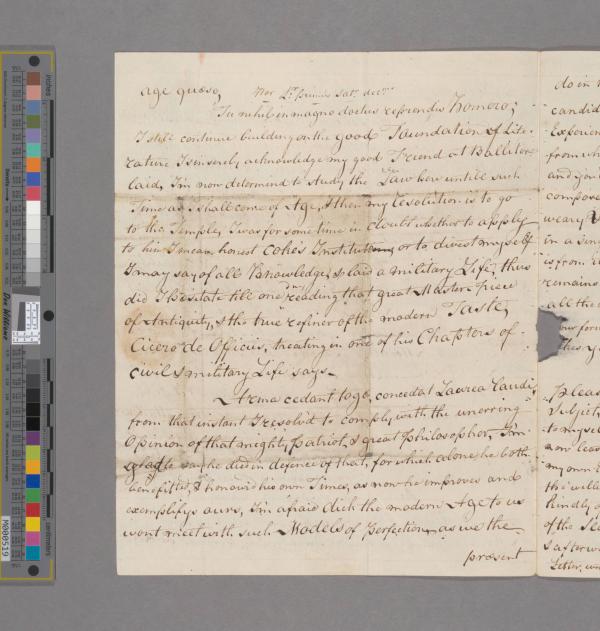 age quæso,
Hor. L. primus Sat.
Tu nihil in magno doctus reprendis Homero;
I still continue building on the good Foundation of Lite-
rature I sincerely acknowledge my good Friend at Ballitore
laid, I'm now determined to study the Law here until such
Time as I shall come of Age, & then my resolution is to go
to the Temple, I was for some time in doubt whether to apply
to him I mean honest Coke's Institutions or to divest myself
I may say of all Knowledge, & lead a military Life, thus
did I hesitate till one reading that great Master piece
of Antiquity, & the true refiner of the modern Taste,
Cicero de Officiis, treating in one of his Chapters of
civil & military Life says
Arma cedant togæ, concedat Laurea Laudi,
from that instant I resolv'd to comply with the unerring
Opinion of that mighty Patriot, & great Philosopher, I'm
glad he died in defence of that, for which alone he both
benefitted, & honour'd his own Times, as now he improves and
exemplifys ours, I'm afraid Dick the modern Age to us
wont meet with such Models of Perfection, as we the
present
do in
candid
Experien
from wh
and you
compose
weary
in a sin
is from
remains
all the
our for
Pleas
Subject
to myse
now leas
my own
the will
kindly
of the
Safter w
Letter, w
inches
centimeters
Don Williams
M000519